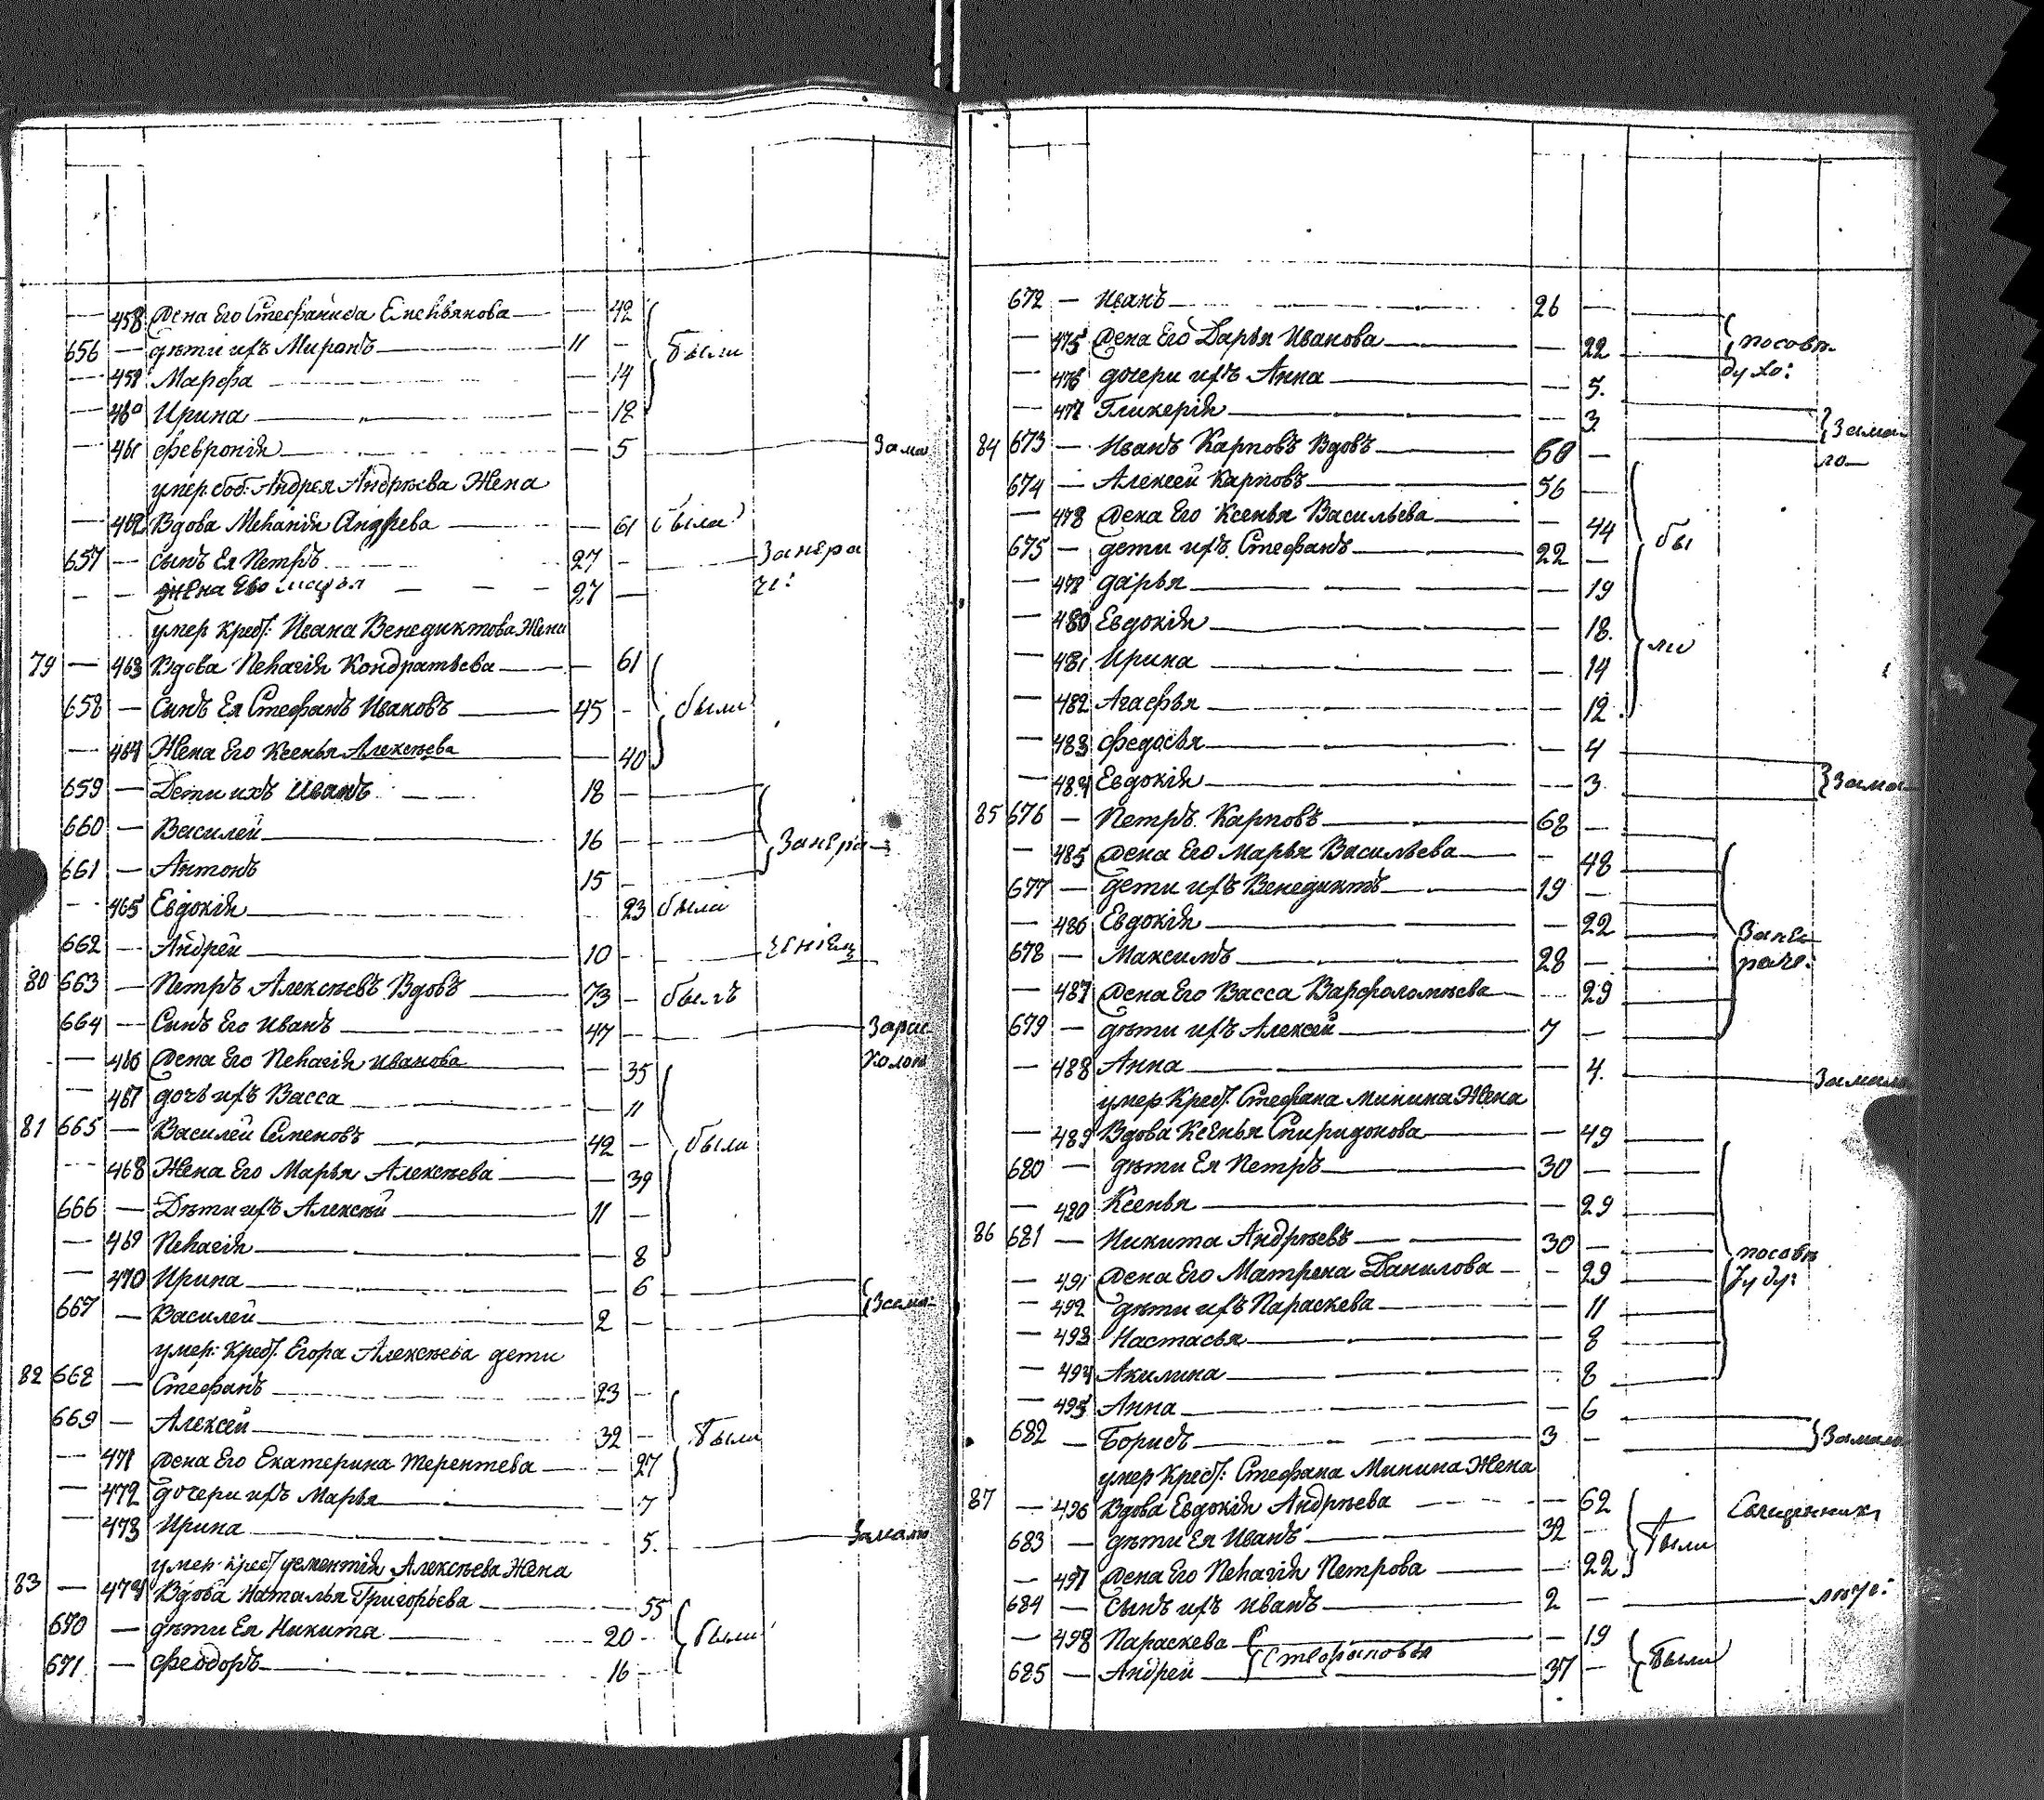 458 Жена Его Стефанида Емельянова 42
656 — дѣти ихъ Миронъ 11 — были
— 459 Марѳа — 14
— 460 Ирина — 12
— 461 февронія — 5 Зама
умер: соб: Андрея Андрѣева Жена
— 462 Вдова Меланія Андрѣева — 61 была
657 — сынъ Ея Петръ 27 — Занера
— — жена Его 27 — че:
умер Крест: Ивана Венедиктова Жена
79 — 463 Вдова Пелагія Кондратьева — 61
658 — Сынъ Ея Стефанъ Ивановъ 45 — были
— 464 Жена Его Ксенья Алексѣева — 40
659 — Дети ихъ Иванъ 18 —
660 — Василей 16 — Занера
661 — Антонъ 15 —
— 465 Евдокія 23 была
662 — Андрей 10 —
80 663 — Петръ Алексѣевъ Вдовъ 73 — былъ
664 — Сынъ Его Иванъ 47 — Зарас
— 466 Жена Его Пелагія Иванова — 35 колом
— 467 дочь ихъ Васса — 11
81 665 — Василей Семеновъ 42 — были
— 468 Жена Его Марья Алексѣева — 39
666 — Дѣти ихъ Алексѣй 11 —
— 469 Пелагія — 8
— 470 Ирина — 6
667 — Василей 2 — Зама
умер: Крест: Егора Алексѣева дети
82 668 — Стефанъ 23 —
669 — Алексей 32 — были
— 471 Жена Его Екатерина Терентева — 27
— 472 дочери ихъ Марья — 7
— 473 Ирина 5. Замало
умер: крест дементія Алексѣева Жена
83 — 474 Вдова Наталья Григорьева 55
670 — дѣти Ея Никита 20 — были
671 — феодоръ 16
672 — Иванъ 26 —
— 475 Жена Его Дарья Иванова — 22 посовѣ
— 476 дочери ихъ Анна — 5. духо:
— 477 Гликерія — 3
84 673 — Иванъ Карповъ Вдовъ 60 — Зама
674 — Алексей Карповъ 56 — ло
— 478 Жена Его Ксенья Васильева — 44
675 — дети ихъ Стефанъ 22 — бы
— 479 дарья — 19
— 480 Евдокія — 18.
— 481 Ирина — 14 ли
— 482 Агафья — 12
— 483 федосья — 4
— 484 Евдокія — 3 Зама
85 676 — Петръ Карповъ 68 —
— 485 Жена Его Марья Васильева — 48
677 — дети ихъ Венедиктъ 19 —
— 486 Евдокія — 22
678 — Максимъ 28 — Зане
— 487 Жена Его Васса Варфоломѣева — 29 раче:
679 — дѣти ихъ Алексей 7 —
— 488 Анна — 4. Замало
умер Крест: Стефана Минина Жена
— 489 Вдова Ксенья Спиридонова — 49
680 — дѣти Ея Петръ 30 —
— 490 Ксенья — 29
86 681 — Никита Андрѣевъ 30 —
— 491 Жена Его Матрена Данилова — 29 посовѣ
— 492 дѣти ихъ Параскева — 11 ту ду:
— 493 Настасья — 8
— 494 Акилина 8
— 495 Анна — 6
682 — Борисъ 3 — Замало
умер Крест: Стефана Минина Жена
87 — 496 Вдова Евдокія Андрѣева — 62 Священник
683 — дѣти Ея Иванъ 32 — были
— 497 Жена Его Пелагія Петрова — 22
684 — Сынъ ихъ Иванъ 2 —
— 498 Параскева — 19
685 — Андрей 37 — были